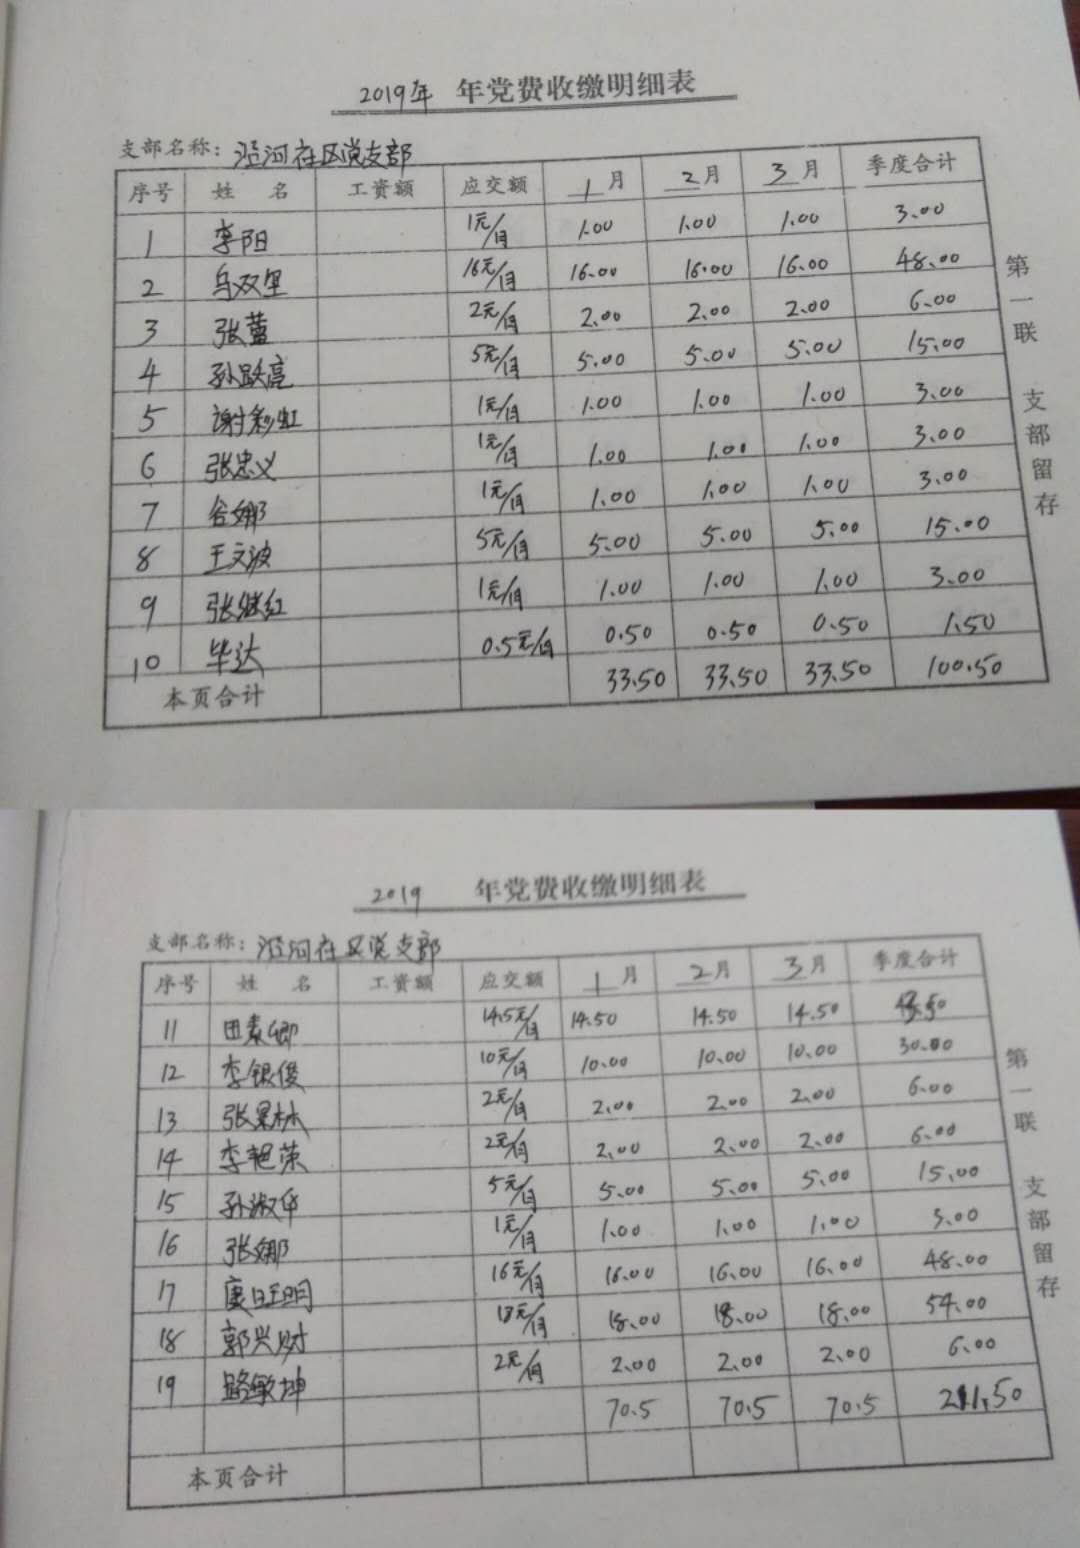 2019年 年党费收缴明细表
支部名称：沿河社区党支部
序号 姓 名 工资额 应交额 1月 2月 3月 季度合计
1 李阳 1元/月 1.00 1.00 1.00 3.00
2 乌双里 16元/月 16.00 16.00 16.00 48.00
3 张蓝 2元/月 2.00 2.00 2.00 6.00
4 孙跃亮 5元/月 5.00 5.00 5.00 15.00
5 谢彩虹 1元/月 1.00 1.00 1.00 3.00
6 张忠义 1元/月 1.00 1.00 1.00 3.00
7 谷娜 1元/月 1.00 1.00 1.00 3.00
8 王文波 5元/月 5.00 5.00 5.00 15.00
9 张继红 1元/月 1.00 1.00 1.00 3.00
10 毕达 0.5元/月 0.50 0.50 0.50 1.50
本页合计 33.50 33.50 33.50 100.50
第一联 支部留存
2019 年党费收缴明细表
支部名称：沿河社区党支部
序号 姓 名 工资额 应交额 1月 2月 3月 季度合计
11 田素卿 14.5元/月 14.50 14.50 14.50 43.50
12 李银俊 10元/月 10.00 10.00 10.00 30.00
13 张景林 2元/月 2.00 2.00 2.00 6.00
14 李艳荣 2元/月 2.00 2.00 2.00 6.00
15 孙淑华 5元/月 5.00 5.00 5.00 15.00
16 张娜 1元/月 1.00 1.00 1.00 3.00
17 康旺明 16元/月 16.00 16.00 16.00 48.00
18 郭兴财 18元/月 18.00 18.00 18.00 54.00
19 路敏坤 2元/月 2.00 2.00 2.00 6.00
70.5 70.5 70.5 211.50
本页合计
第一联 支部留存